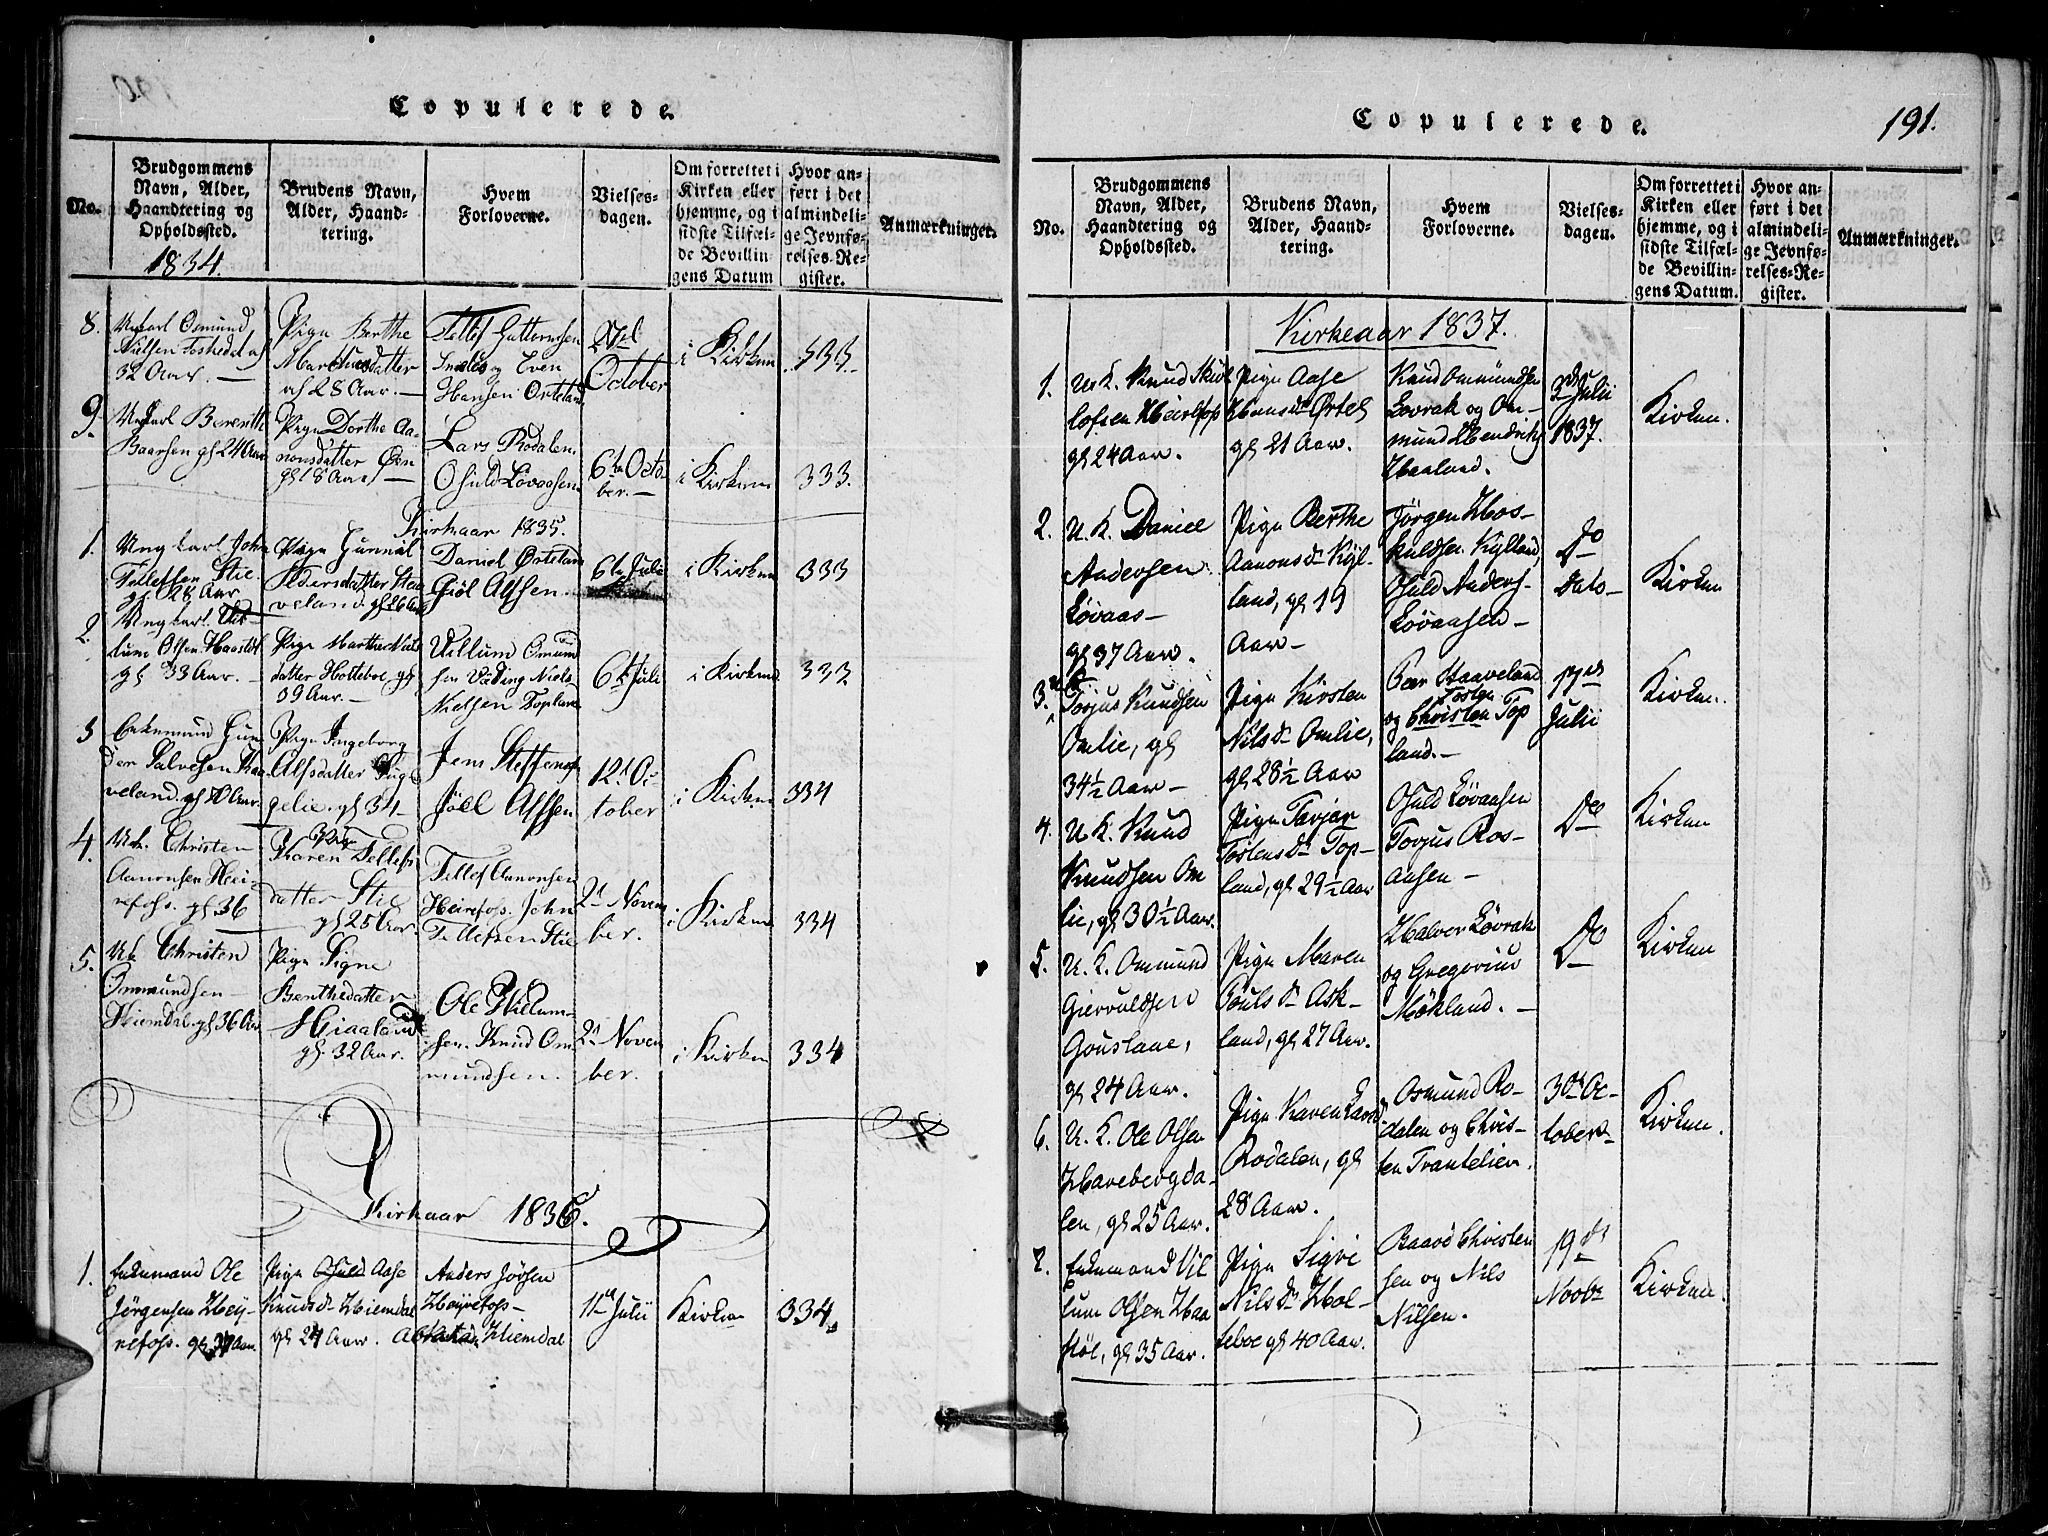 Copulerede.
No.
Brudgommens
Navn, Alder,
Haandtering og
Opholdssted.
1834.
Brudens Navn,
Alder, Haand-
tering.
Hvem
Forloverne.
Vielses-
dagen.
Om forrettet i
Kirken eller
hjemme, og i
sidste Tilfæl-
de Bevillin-
gens Datum
Hvor an-
ført i det
almindeli-
ge Jevnfø-
relses-Re-
gister.
Anmærkninger.
8.
Ungkarl Osmund
Nielsen Toskedal af
32 Aar. —
Pige Berthe
Martinsdatter
af 28 Aar. —
Tellef Guttormsen
og Even
Hansen Ørteland
October
i Kirken
333.
9.
Ungkarl Berenth
Baarsen gl 24 Aar
Pige Dorthe Aa-
nonsdatter
gl 18 Aar —
Lars Rodalen
Osuld Lovaasen
6te Octo-
ber. —
i Kirken
333.
Kirkaar 1835.
1.
Ung karl John
Tellefsen Stie
gl 28 Aar
Pige Gunnil
Pedersdatter Staa-
veland. gl 26 Aar
Daniel Ørteland
Giöl Alfsen.
6te Julii
i Kirken
333
2.
Ungkarl Vil-
lum Olsen Haastøl
gl 33 Aar. —
Pige Marthe Niels
datter Holteboe gl
39 Aar. —
Villum Omund
sen Væding Niels
Nielsen Topland
6te Juli
i Kirken
333
3
Enkemand Gun
der Salvesen Haa
veland. gl 70 Aar.
Pige Ingeborg
Alfsdatter
gelie. gl 34 —
Jens Steffens.
Jöel Alfsen
12te Oc
tober
i Kirken
334
4.
Uk. Christen
Aanonsen Hei-
refoss. gl. 36
Pige
Karen Tellefs
datter Stie
gl 25 Aar.
Tellef Aanonsen
Heirefoss. John
Tellefsen Stie
2den Novem
ber.
i Kirken
334
5.
Uk Christen
Ommundsen —
Hiemdal. gl 36 Aar
Pige Signe
Benthedatter
Hiaaland
gl. 32 Aar.
Ole Willum-
sen. Knud Om
mundsen.
2den Novem
ber.
i Kirken
334
Kirkaar 1836.
1.
Enkemand Ole
Jörgensen Hey-
refoss. gl 37 Aar.
Pige Osuld Aase
Knudsdr Hiemdal
gl 24 Aar.
Anders Jörgsen
Heyrefoss —
Hiemdal
11te Julii
Kirken
334.
Copulerede.
191.
No.
Brudgommens
Navn, Alder,
Haandtering og
Opholdssted.
Brudens Navn,
Alder, Haand-
tering.
Hvem
Forloverne.
Vielses-
dagen.
Om forrettet i
Kirken eller
hjemme, og i
sidste Tilfæl-
de Bevillin-
gens Datum.
Hvor an-
ført i det
almindeli-
ge Jevnfø-
relses-Re-
gister.
Anmærkninger.
Kirkeaar 1837.
1.
U. K. Knud Skiel
lofsen Heirefoss
gl 24 Aar.
Pige Aase
Hansdr Ørtel
gl 21 Aar.
Knud Ommundsen
Lovrak og Om-
mund Hendriks
Haaland.
3de Julii
1837.
Kirken.
2.
U. K. Daniel
Andersen
Løvaas —
gl 37 Aar.
Pige Berthe
Aanonsdr Kyl-
land, gl 19
Aar —
Jörgen Hos-
kuldsen Kylland
Osuld Anders-
Løvaasen —
Do
Dato —
Kirken
3.
Torjus Knudsen
Omlie, gl
34½ Aar —
Pige Kirsten
Nilsdr Omlie,
gl 28½ Aar
Peer Haaveland
Tosten
og Christen Top
land. —
17de
Julii
Kirken.
4.
U. K. Knud
Knudsen Om
lie, gl 30½ Aar.
Pige Torjer
Tostensdr Top-
land, gl 29½ Aar
Osuld Løvaasen
Torjus Ros-
aasen —
Do
Kirken
5.
U. K. Ommund
Giervuldsen
Gouslaae,
gl 24 Aar.
Pige Maren
Poulsdr Ask-
land, gl 27 Aar.
Halvor Lövrak
og Gregorius
Mökland. —
Do
Kirken
6.
U. K. Ole Olsen
Harebergda-
len, gl 25 Aar.
Pige Karen Larsd
Rodalen, gl
28 Aar.
Osmund Ro-
dalen og Chris-
ten Trantelien.
30te Oc-
tober
Kirken.
7.
Enkemand Vil
lum Olsen Haa
støl, gl 35 Aar.
Pige Sigri
Nilsdr Hol-
teboe gl 40 Aar.
Baard Christen
sen og Nils
Nilsen.
19de
Novbr
Kirken.